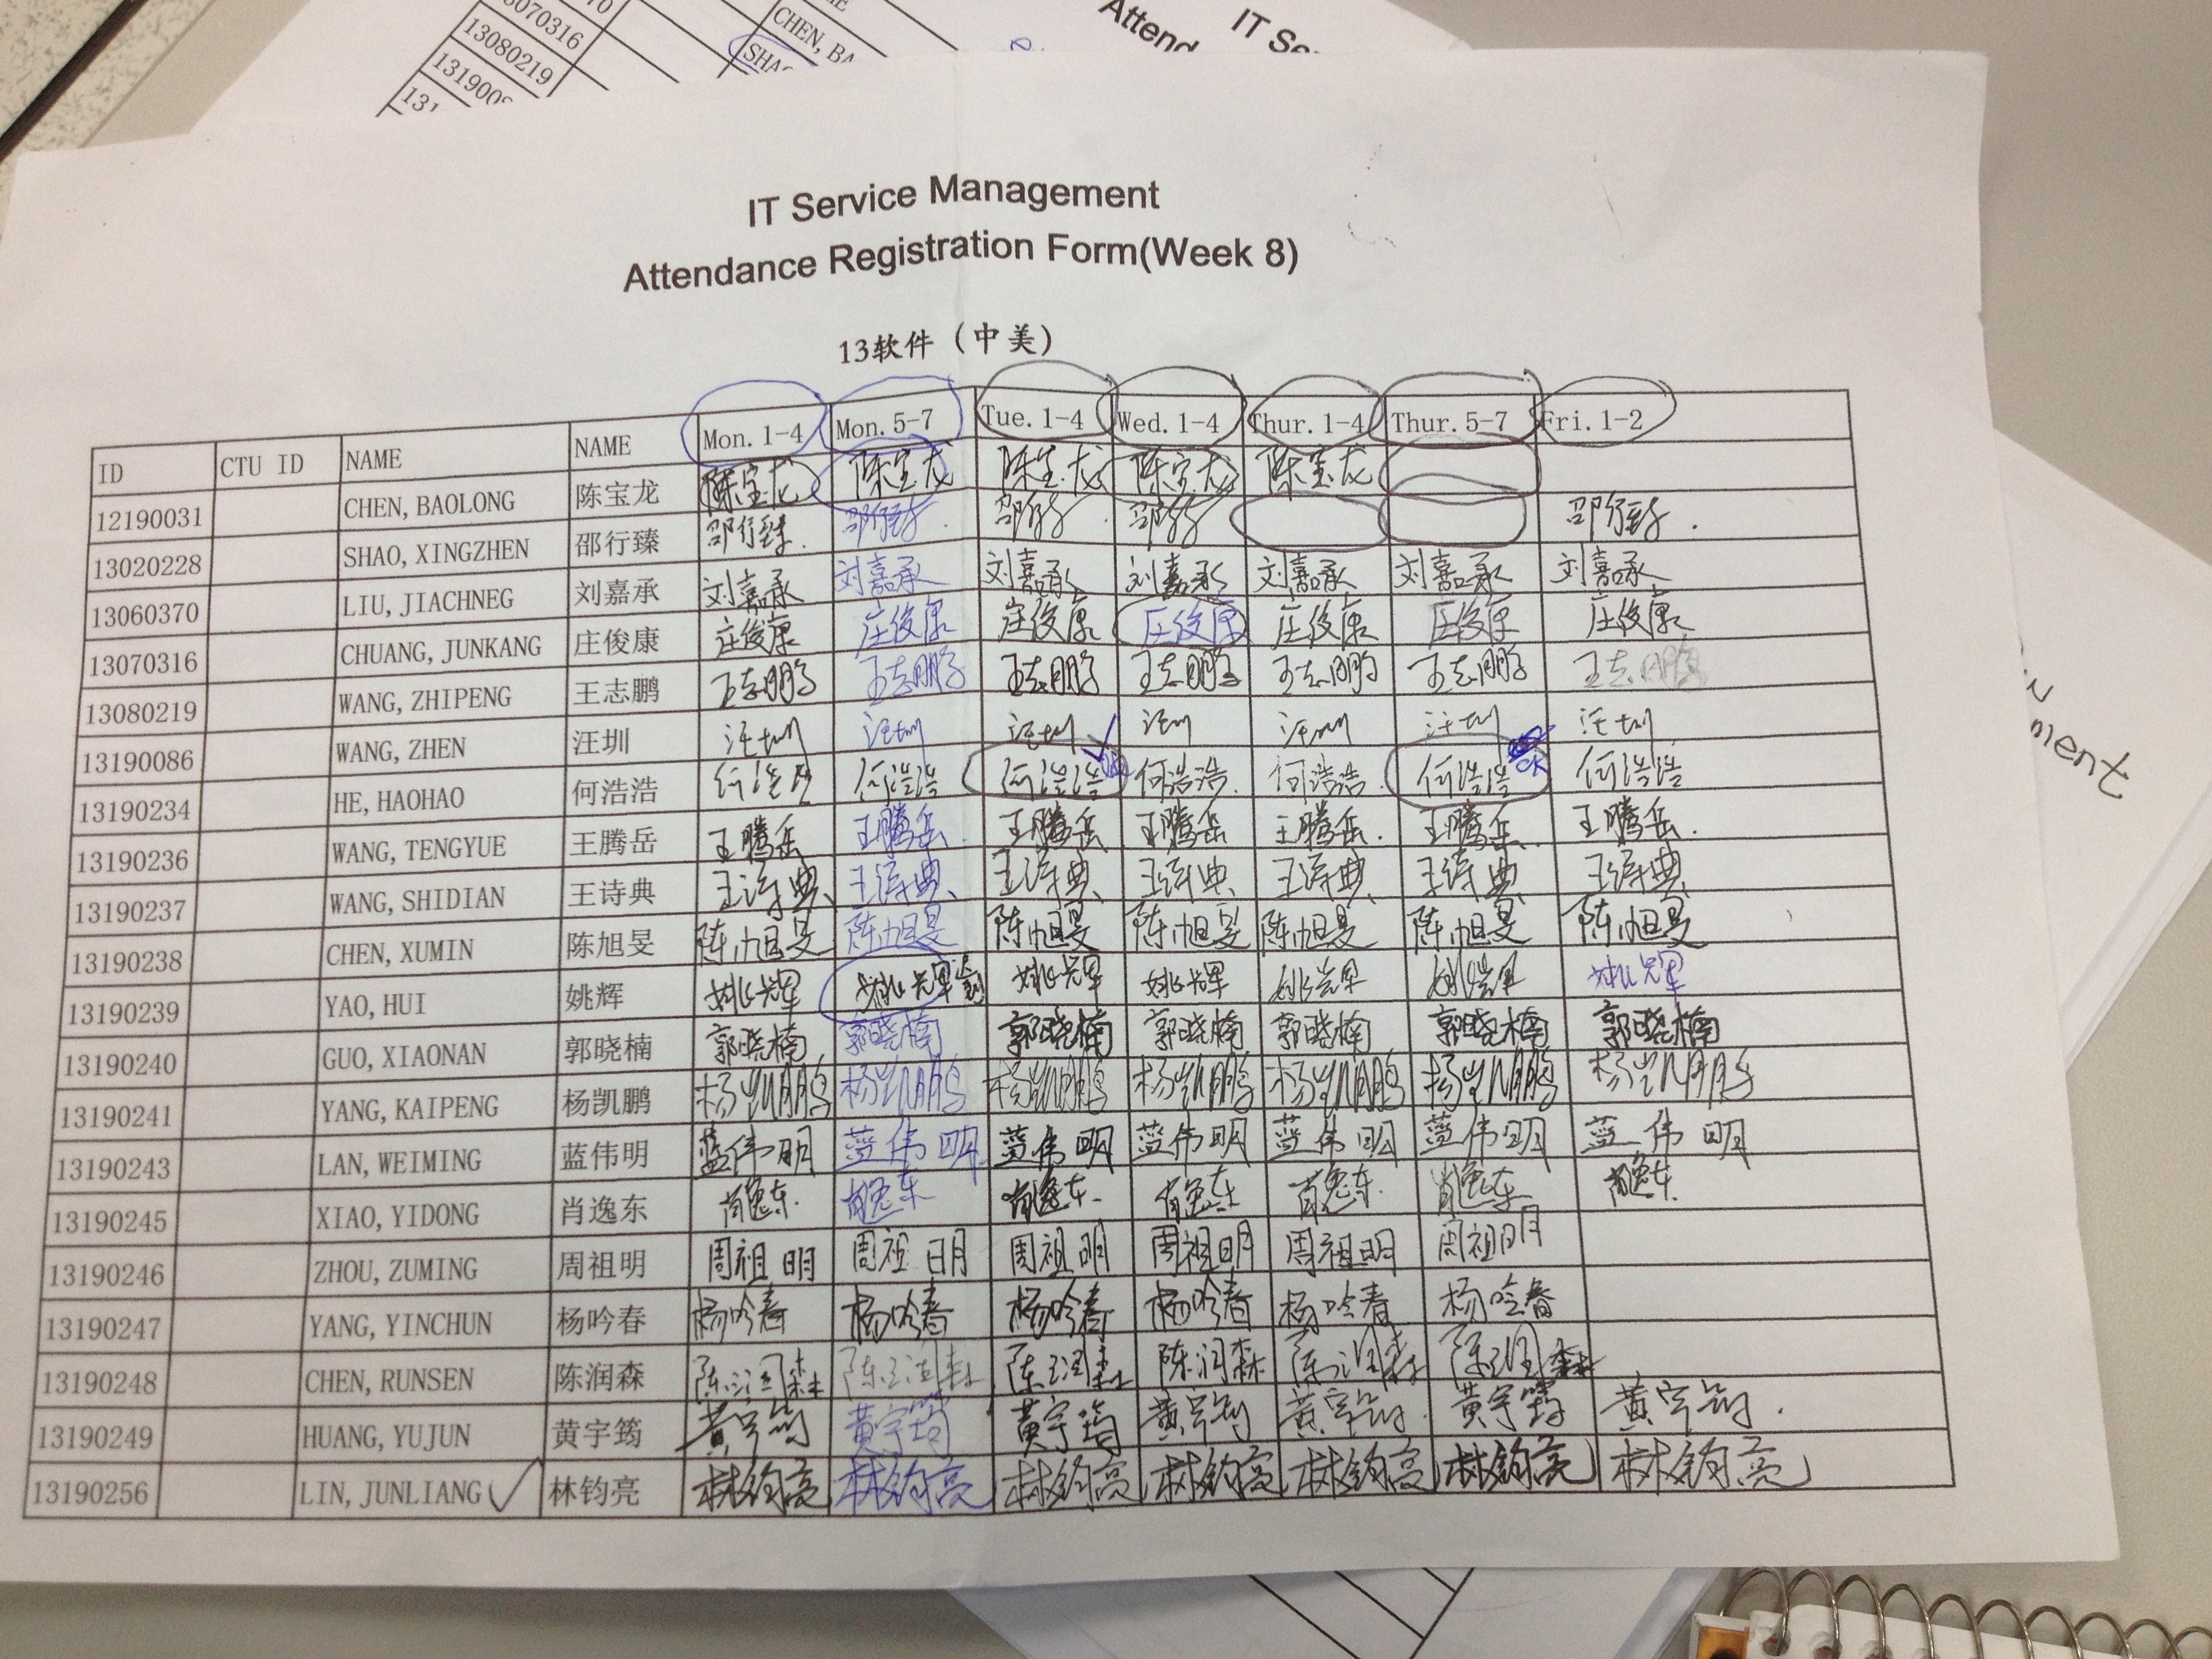 IT Service Management
Attendance Registration Form(Week 8)
13软件（中美）
ID CTU ID NAME NAME Mon. 1-4 Mon. 5-7 Tue. 1-4 Wed. 1-4 Thur. 1-4 Thur. 5-7 Fri. 1-2
12190031 CHEN, BAOLONG 陈宝龙 陈宝龙 陈宝龙 陈宝龙 陈宝龙 陈宝龙
13020228 SHAO, XINGZHEN 邵行臻 邵行臻
13060370 LIU, JIACHNEG 刘嘉承 刘嘉承 刘嘉承 刘嘉承 刘嘉承 刘嘉承 刘嘉承 刘嘉承
13070316 CHUANG, JUNKANG 庄俊康 庄俊康 庄俊康 庄俊康 庄俊康 庄俊康 庄俊康 庄俊康
13080219 WANG, ZHIPENG 王志鹏 王志鹏 王志鹏 王志鹏 王志鹏 王志鹏 王志鹏 王志鹏
13190086 WANG, ZHEN 汪圳 汪圳 汪圳 汪圳 汪圳 汪圳 汪圳 汪圳
13190234 HE, HAOHAO 何浩浩 何浩浩 何浩浩 何浩浩 何浩浩 何浩浩 何浩浩 OK 何浩浩
13190236 WANG, TENGYUE 王腾岳 王腾岳 王腾岳 王腾岳 王腾岳 王腾岳 王腾岳 王腾岳
13190237 WANG, SHIDIAN 王诗典 王诗典 王诗典 王诗典 王诗典 王诗典 王诗典 王诗典
13190238 CHEN, XUMIN 陈旭旻 陈旭旻 陈旭旻 陈旭旻 陈旭旻 陈旭旻 陈旭旻 陈旭旻
13190239 YAO, HUI 姚辉 姚辉 姚辉 姚辉 姚辉 姚辉 姚辉 姚辉
13190240 GUO, XIAONAN 郭晓楠 郭晓楠 郭晓楠 郭晓楠 郭晓楠 郭晓楠 郭晓楠 郭晓楠
13190241 YANG, KAIPENG 杨凯鹏
13190243 LAN, WEIMING 蓝伟明 蓝伟明 蓝伟明 蓝伟明 蓝伟明 蓝伟明 蓝伟明 蓝伟明
13190245 XIAO, YIDONG 肖逸东 肖逸东 肖逸东 肖逸东 肖逸东 肖逸东 肖逸东 肖逸东
13190246 ZHOU, ZUMING 周祖明 周祖明 周祖明 周祖明 周祖明 周祖明 周祖明
13190247 YANG, YINCHUN 杨吟春 杨吟春 杨吟春 杨吟春 杨吟春 杨吟春 杨吟春
13190248 CHEN, RUNSEN 陈润森 陈润森 陈润森 陈润森 陈润森 陈润森 陈润森
13190249 HUANG, YUJUN 黄宇筠 黄宇筠 黄宇筠 黄宇筠 黄宇筠 黄宇筠 黄宇筠 黄宇筠
13190256 LIN, JUNLIANG 林钧亮 林钧亮 林钧亮 林钧亮 林钧亮 林钧亮 林钧亮 林钧亮
IT Se
Atten
CHEN, BA
SHA
13070316
13080219
131900